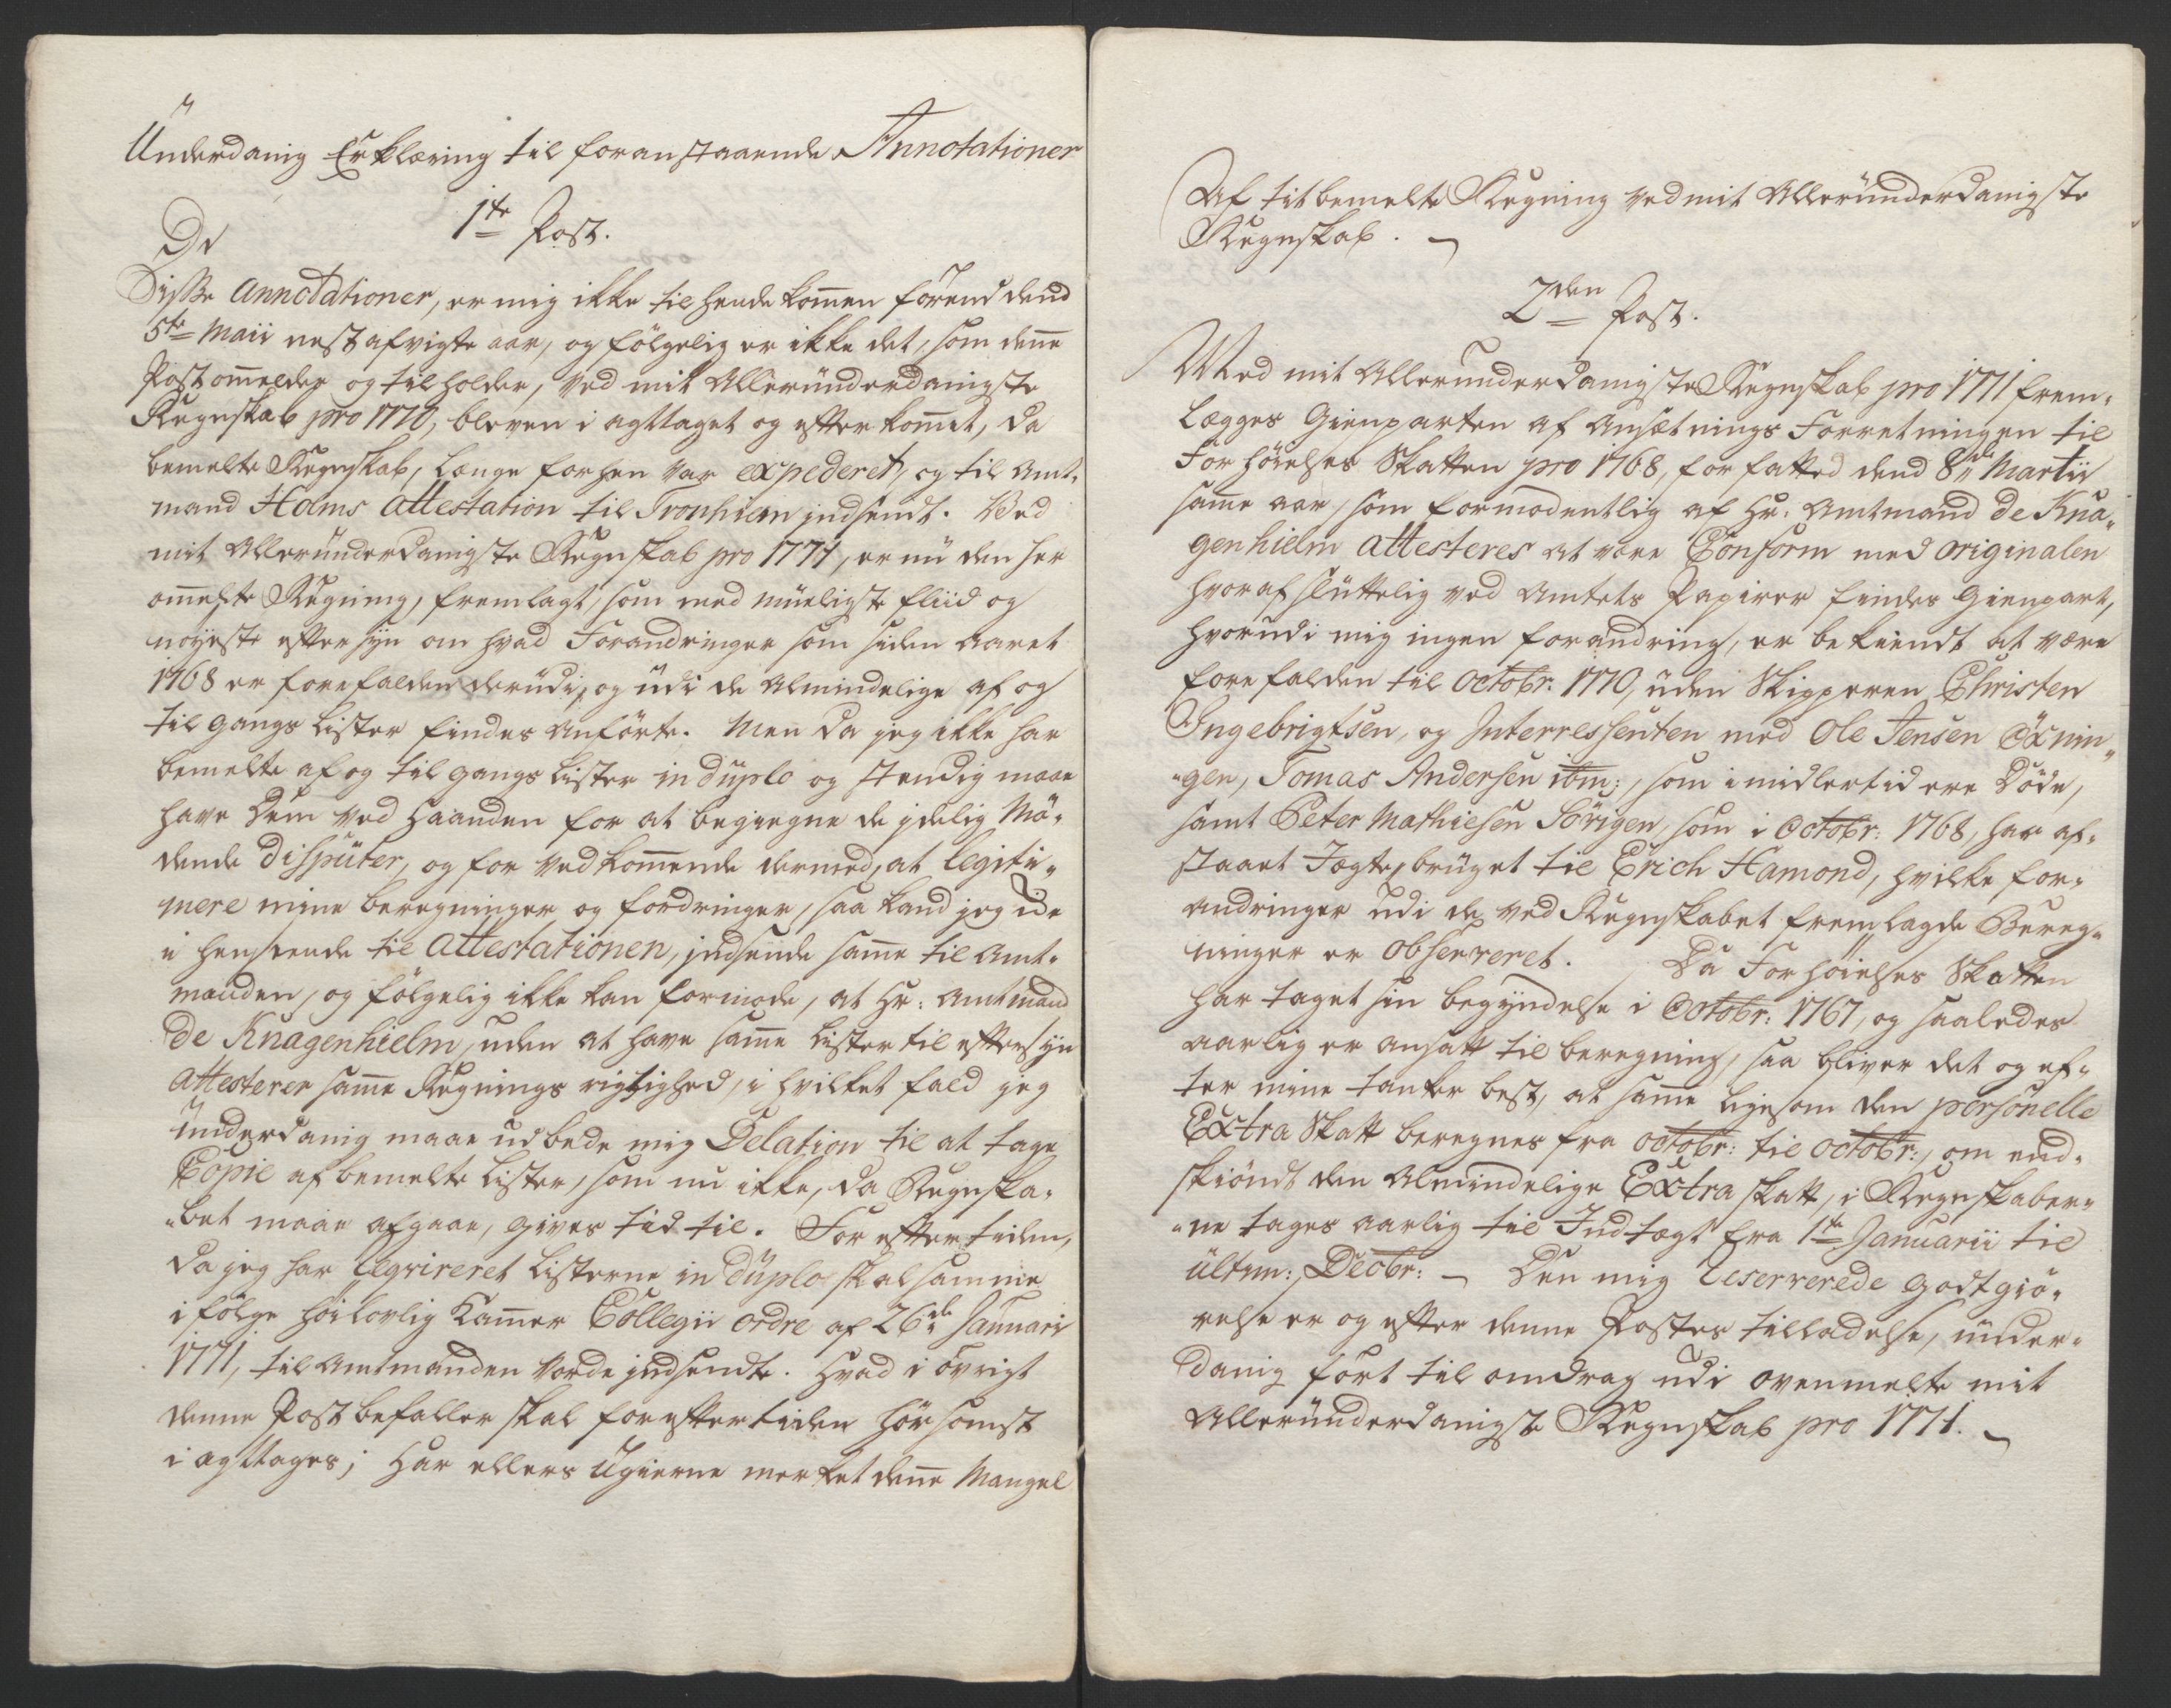 Underdanig Erklæring til foranstaaende Annotationer
1te Post.
De
Disse Annotationer, er mig ikke tilhende kommen förend dend
5te Maii nest afvigte aar, og fölgelig er ikke det, som denne
Post ommelder og tilholder, ved mit Alleründerdanigste
Regnskab pro 1770, bleven i agttaget og efterkommet, da
bemelte Regnskab, længe forhen var expederet, og til Amt-
mand Holms Attestation til Tronhiem indsendt. Ved
mit Alleründerdanigste Regnskab pro 1771, er nü den her
ommelte Regning, fremlagt, som med müeligste fliid og
nöyeste eftersyn om hvad Forandringer som siden Aaret
1768 er forefalden derüdi, og üdi de Almindelige af og
tilgangs Lister findes Anförte. Men da jeg ikke har
bemelte af og tilgangs Lister in düplo og stendig maae
have dem ved Haanden for at begiegne de jdelig Mö-
dende Dispüter, og for vedkommende dermed, at legiti-
mere mine beregninger og fordringer, saa kand jeg ide
i henseende til Attestationen, indsende samme til Amt-
manden, og fölgelig ikke kan formode, at Hr: Amtmand
de Knagenhielm, uden at have samme Lister til eftersyn
Attesterer samme Regnings rigtighed, i hvilket fald jeg
ünderdanig maae udbede mig Delation til at tage
Copie af bemelte Lister, som nu ikke, da Regnska-
bet maae afgaae, gives tid til. For eftertiden,
da jeg har legvireret Listerne in düplo skal samme
i fölge höilovlig Kammer Collegii ordre af 26de Januarii
1771, til Amtmanden vorde indsendte. Hvad i övrigt
denne Post befaller skal for eftertiden hörsomst
i agttages; Har ellers Ugierne merket denne Mangel
Af titbemelte Regning ved mit Alleründerdanigste
Regnskab.
2den Post.
Med mit Allerunderdanigste Regnskab pro 1771 frem-
lægges Gienparten af Ansætnings Forretningen til
Forhöielses Skatten pro 1768, forfatted dend 8de Martii
samme aar, som formodentlig af Hr: Amtmand de Kna-
genhielm Attesteres at være Conform med originalen
hvoraf slüttelig ved Amtets Papirer findes Gienpart,
hvorudi mig ingen forandring, er bekiendt at være
forefalden til Octobr: 1770, üden Skipperen Christen
Ingebrigtsen, og Interressenten med Ole Jensen Öxnin-
gen, Tomas Andersen ibm:, som imidlertid ere Döde,
samt Peter Mathiesen Sörigen, som i Octobr: 1768, har af-
staaet Jægtebrüget til Erich Hamond, hvilke for-
andringer üdi de ved Regnskabet fremlagde Bereg-
ninger er Observeret. Da Forhöielses Skatten
har taget sin begyndelse i Octobr: 1767, og saaledes
aarlig er ansatt til beregning, saa bliver det og ef-
ter mine tanker best, at samme ligesom den personelle
Extra Skatt beregnes fra Octobr: til Octobr:, om end-
skiöndt den Almindelige Extra skatt, i Regnskaber-
ne tages aarlig til Indtægt fra 1te Januarii til
ültim: Decbr: — Den mig reserverede godtgiö-
relse er og efter denne Postes tilladelse, ünder-
danig fört til omdrag udi ovenmelte mit
Alleründerdanigste Regnskab pro 1771.